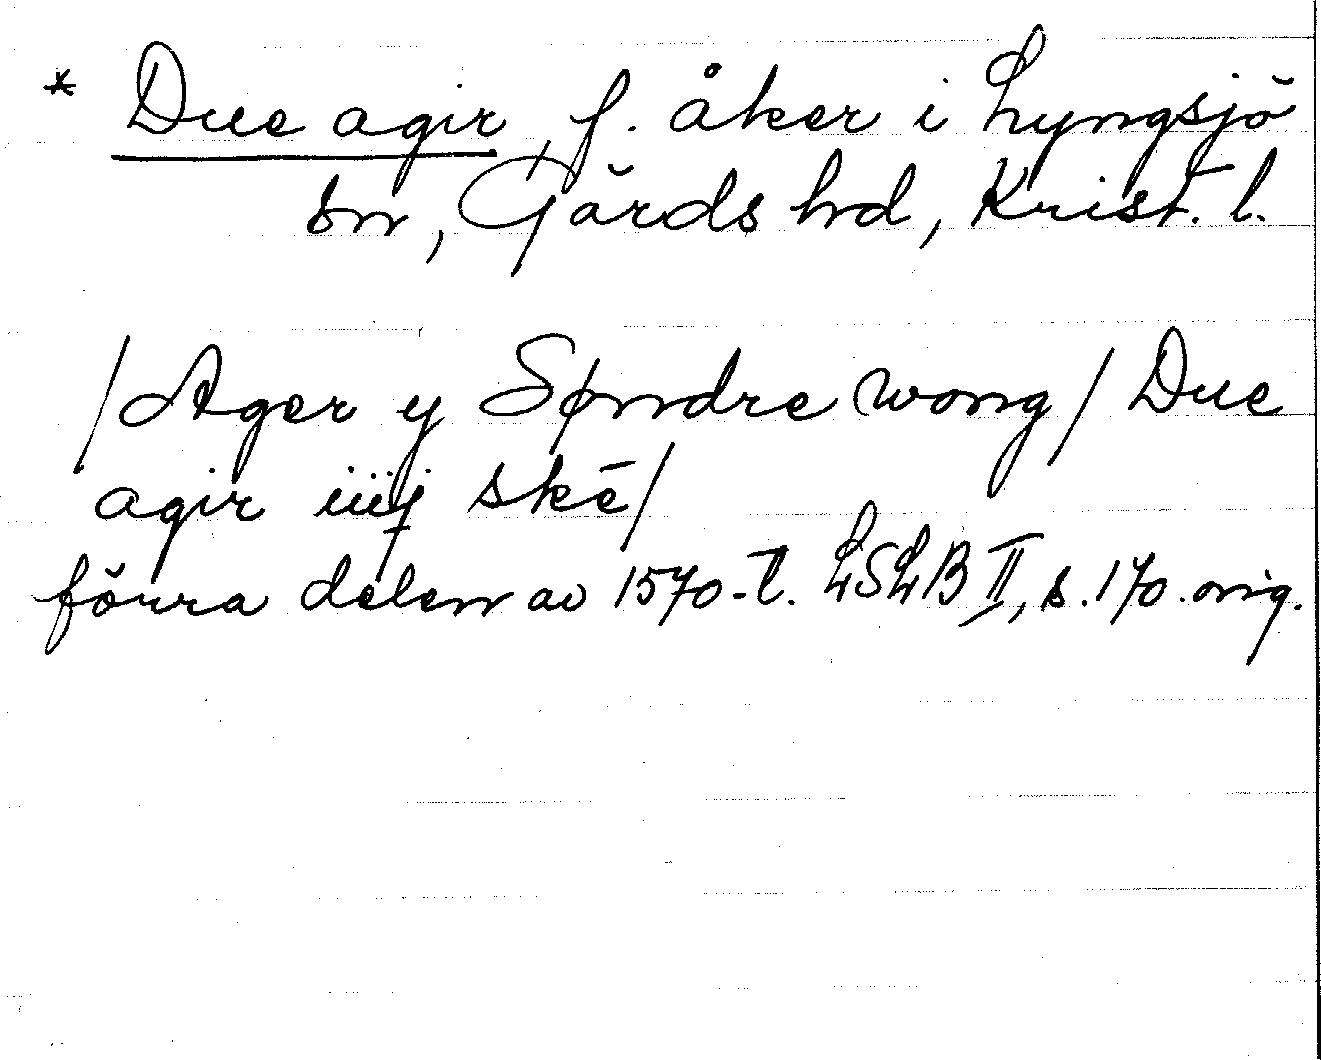 * Due agir, f. åker i Lyngsjö
sn, Gärds hd, Krist. l.
/Ager y Søndre wong/ Due
agir iiij skē/
förra delen av 1570-t. LSLB II, s. 170. orig.